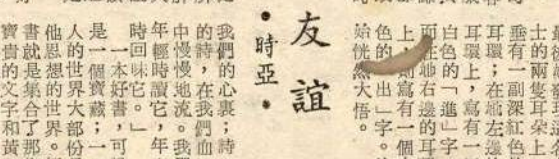 士的兩隻耳朵上
垂有一副深紅色
耳環；在她左邊
耳環上，寫有一
白色的「進」字
而在她右邊的耳
上，則寫有一個
色的「出」字。
始恍然大悟。
友誼
•時亞•
我們的心裏；詩
的詩，在我們血
中慢慢地流。我
年輕時讀它，年
時回味它。」
一本好書，可
是一個寶藏；一
人的世界大部份
他思想的世界。
書就是集合了那
寶貴的文字和黃